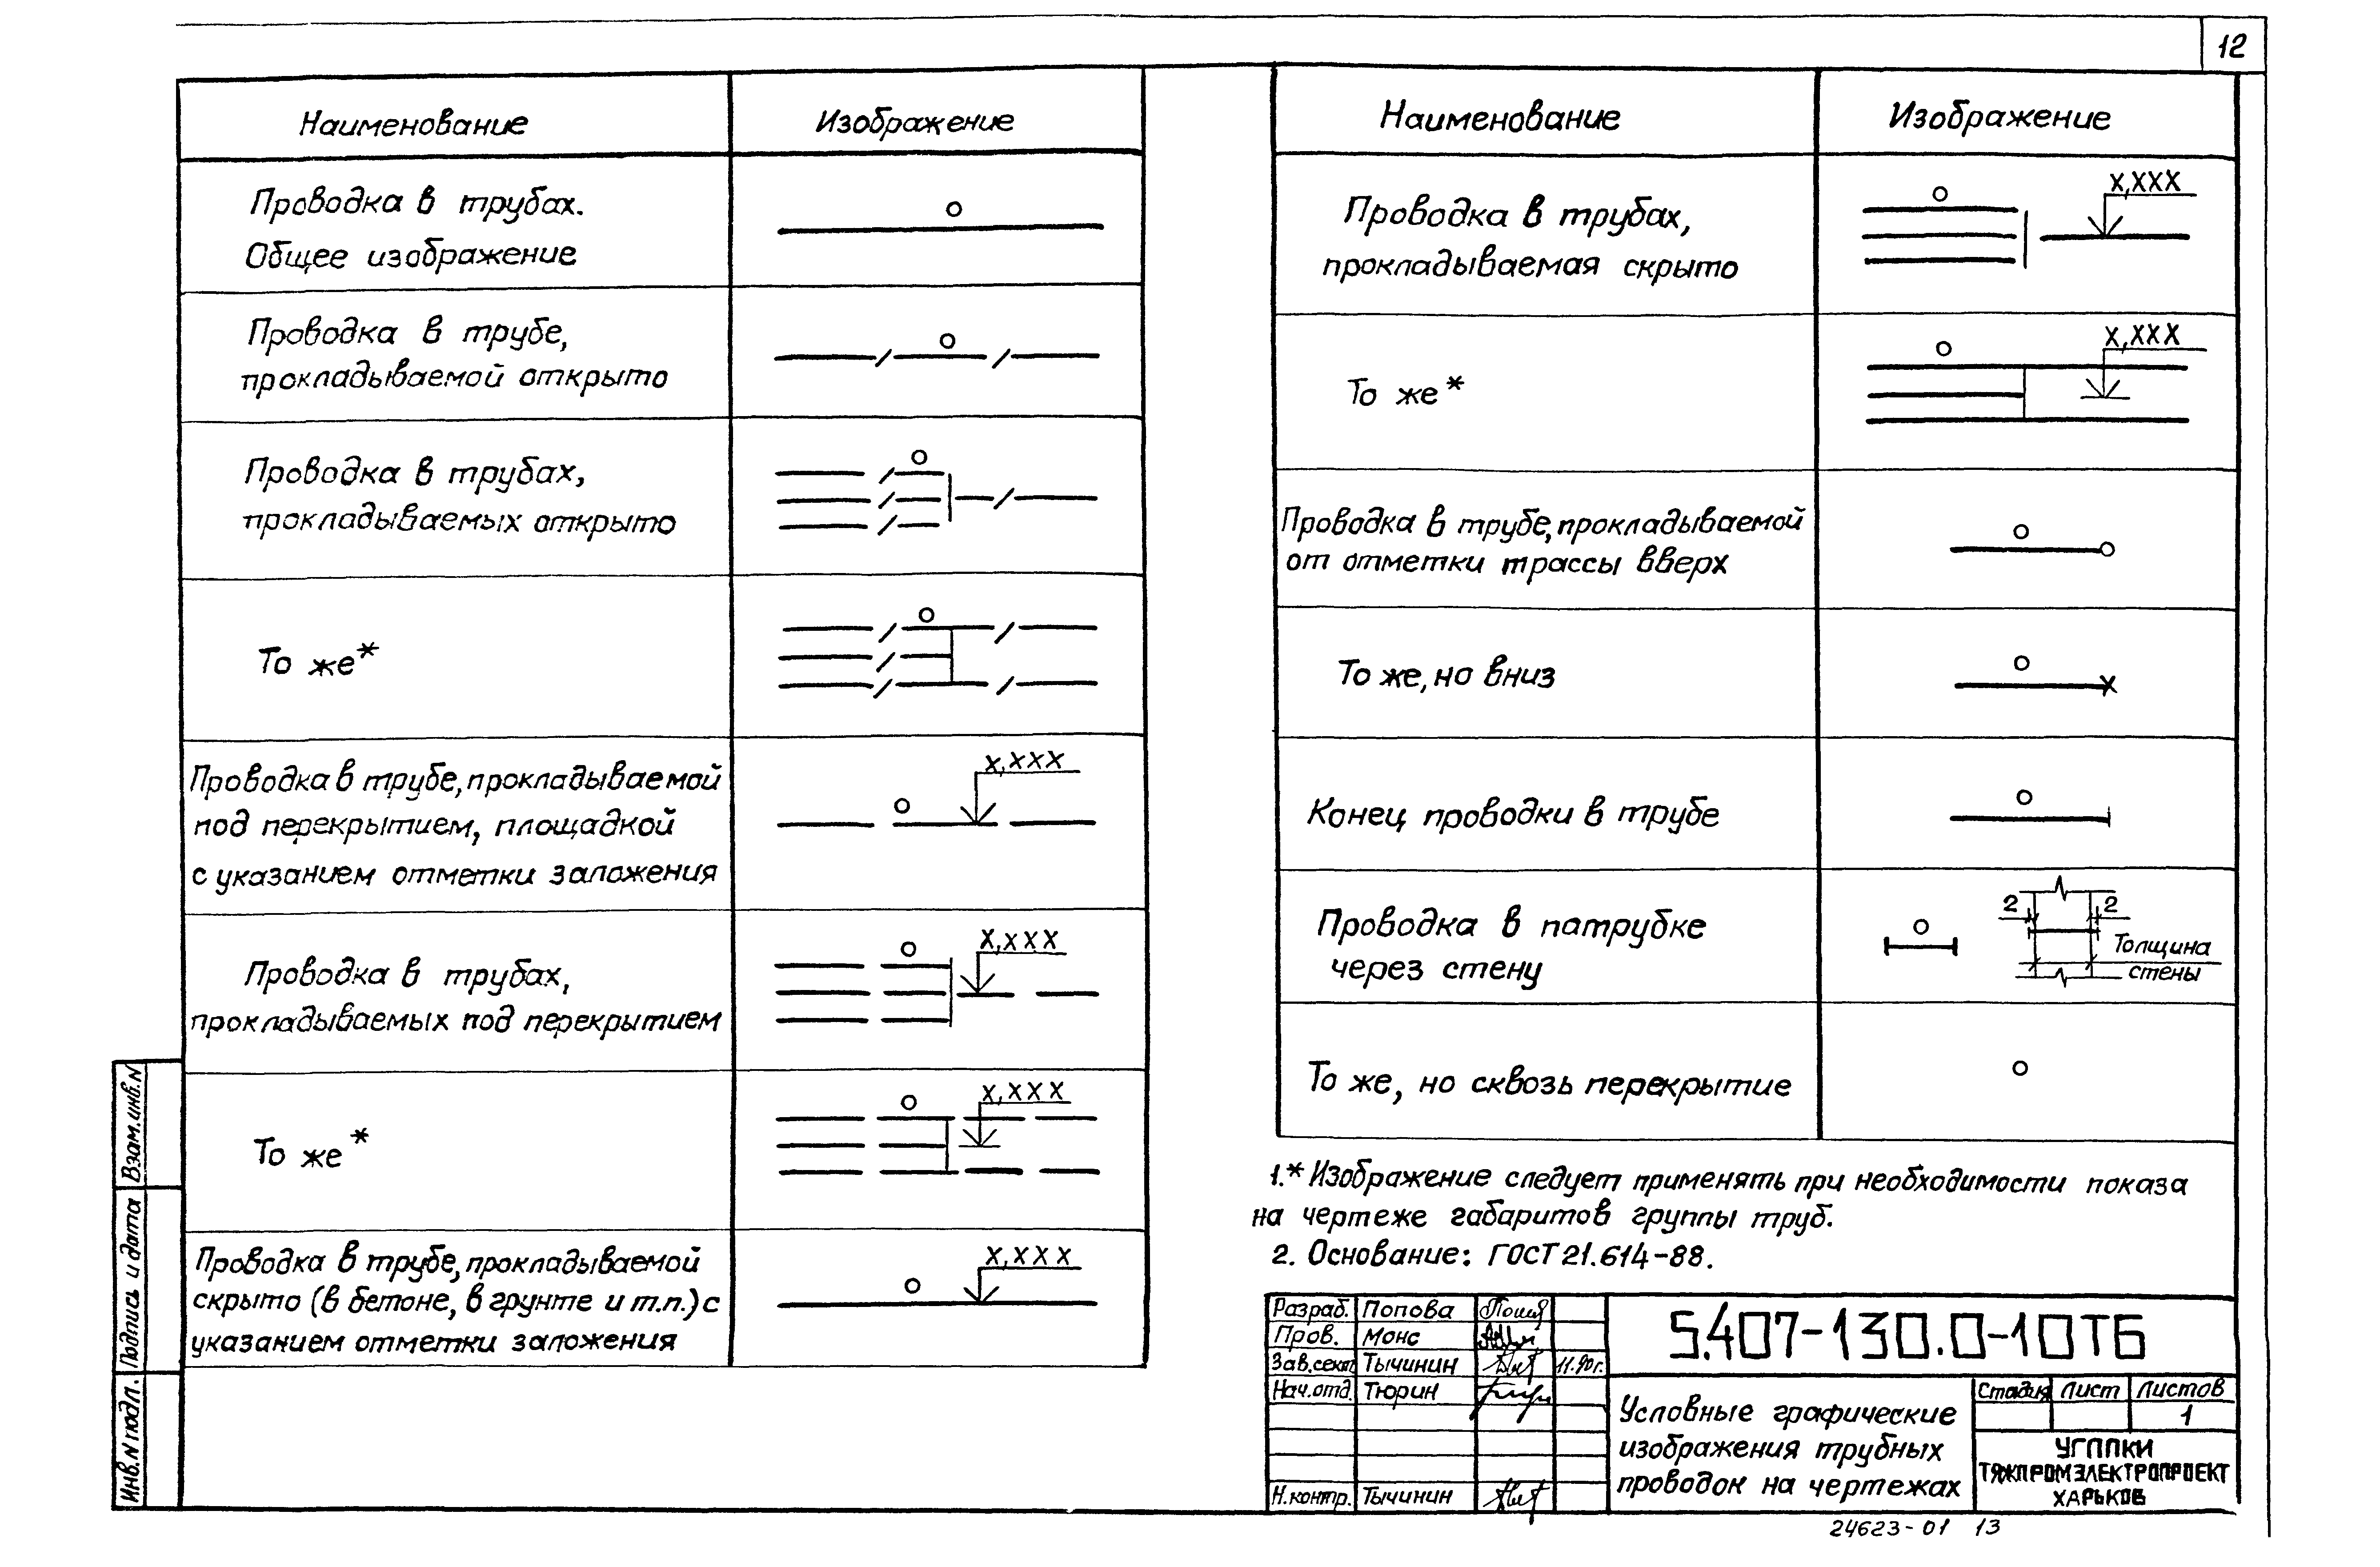 12
Наименование
Изображение
Проводка в трубах.
Общее изображение
Проводка в трубе,
прокладываемой открыто
Проводка в трубах,
прокладываемых открыто
То же*
Проводка в трубе, прокладываемой
под перекрытием, площадкой
с указанием отметки заложения
х,ххх
Проводка в трубах,
прокладываемых под перекрытием
х,ххх
То же*
х,ххх
Проводка в трубе, прокладываемой
скрыто (в бетоне, в грунте и т.п.) с
указанием отметки заложения
х,ххх
Наименование
Изображение
Проводка в трубах,
прокладываемая скрыто
х,ххх
То же*
х,ххх
Проводка в трубе, прокладываемой
от отметки трассы вверх
То же, но вниз
Конец проводки в трубе
Проводка в патрубке
через стену
2
2
Толщина
стены
То же, но сквозь перекрытие
1.* Изображение следует применять при необходимости показа
на чертеже габаритов группы труб.
2. Основание: ГОСТ 21.614-88.
Разраб. Попова
Пров. Монс
Зав.сект. Тычинин 11.90г.
Нач.отд. Тюрин
Н.контр. Тычинин
5.407-130.0-10ТБ
Условные графические
изображения трубных
проводок на чертежах
Стадия Лист Листов
1
УГППКИ
ТЯЖПРОМЭЛЕКТРОПРОЕКТ
ХАРЬКОВ
24623-01 13
Взам.инв.N
Подпись и дата
Инв.N подл.